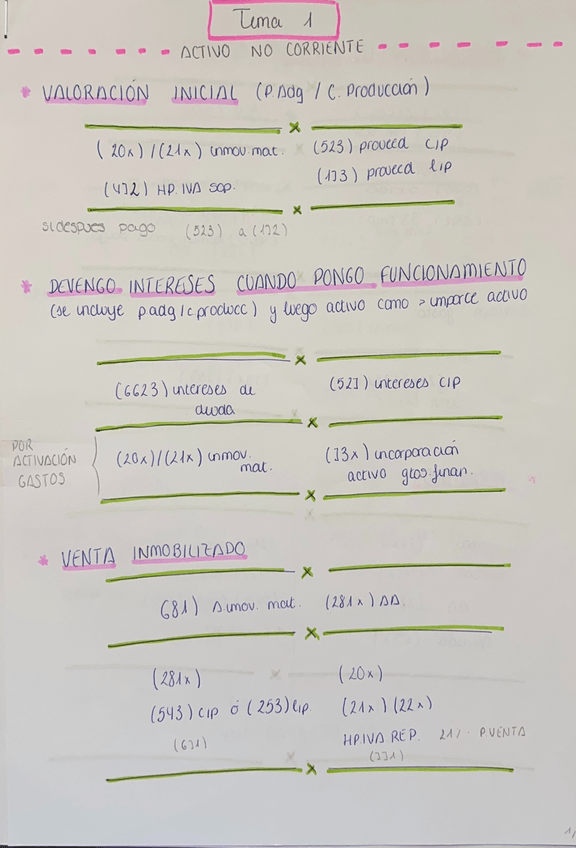 Tema 1
ACTIVO NO CORRIENTE
* VALORACIÓN INICIAL (P.Adq / C. Producción)
x
(20x) / (21x) inmov. mat. (523) proveed c/p
(472) HP. IVA SOP. (173) proveed l/p
x
si despues pago (523) a (172)
* DEVENGO INTERESES CUANDO PONGO FUNCIONAMIENTO
(se incluye p adq / c producc) y luego activo como > importe activo
x
(6623) intereses de deuda (527) intereses C/P
x
POR ACTIVACIÓN GASTOS (20x) / (21x) inmov. mat. (73x) incorporación activo gtos. finan.
x
* VENTA INMOBILIZADO
x
681) A inmov. mat. (281x) AA.
x
(281x) (20x)
(543) c/p ó (253) l/p (21x) (22x)
(671) HP.IVA REP. 21% P.VENTA
(771)
x
1/